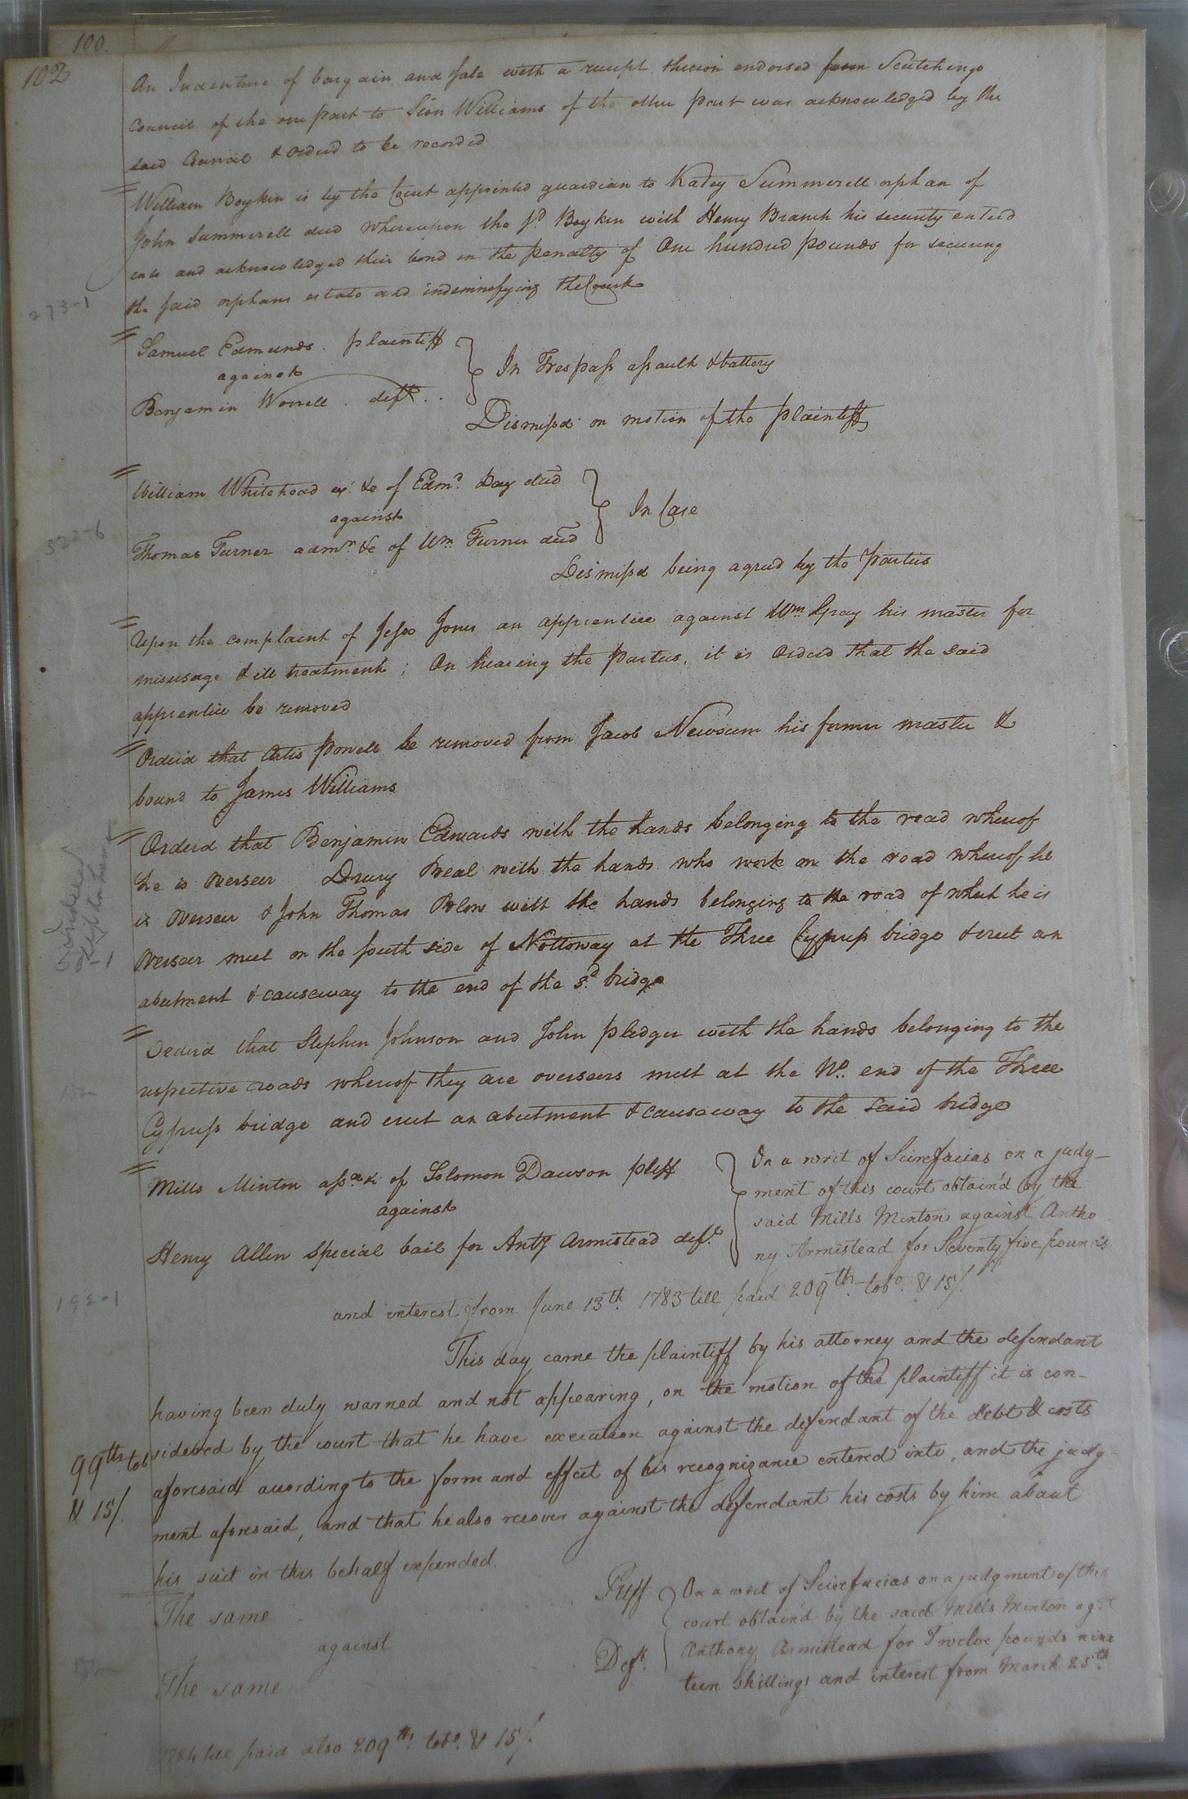 100.
102
An Indenture of bargain and sale with a receipt thereon endorsed from Scutchings
Council of the one part to Sion Williams of the other part was acknowledged by the
said Council & ordered to be recorded
William Boykin is by the Court appointed guardian to Kadey Summerell orphan of
John Summerell decd whereupon the sd. Boykin with Henry Branch his security entered
into and acknowledged their bond in the penalty of One hundred pounds for securing
the said orphans estate and indemnifying the Court
273-1
Samuel Edmunds. plaintiff
against
Benjamin Worrell. deft..
In Trespass assault & battery
Dismissd on motion of the plaintiff
William Whitehead exr. &c of Edmd. Day decd
against
Thomas Turner admr. &c of Wm Turner decd
In Case
322-6
Dismissd being agreed by the parties
Upon the complaint of Jesse Jones an apprentice against Wm. Gray his master for
misusage & ill treatment; On hearing the parties, it is Ordered that the said
apprentice be removed
Ordered that Artis Powell be removed from Jacob Newsum his former master &
bound to James Williams
Orderd that Benjamin Edwards with the hands belonging to the road whereof
he is overseer Drury Beal with the hands who work on the road whereof he
is Overseer & John Thomas Blow with the hands belonging to the road of which he is
Overseer meet on the south side of Nottoway at the Three Cypress bridge & erect an
abutment & causeway to the end of the sd. bridge
Ordered that Stephen Johnson and John Pledger with the hands belonging to the
respective roads whereof they are overseers meet at the No. end of the Three
Cypress bridge and erect an abutment & causeway to the said bridge
Mills Minton asse. &c of Solomon Dawson pltff
against
Henry Allen special bail for Anty Armistead deft.
On a writ of Scirefacias on a judg-
ment of this court obtain'd by the
said Mills Minton against Antho
ny Armistead for Seventy five pounds
192-1
and interest from June 13th. 1783 till paid 209 lbs. tobo. & 15/.
This day came the plaintiff by his attorney and the defendant
having been duly warned and not appearing, on the motion of the plaintiff it is con-
sidered by the court that he have execution against the defendant of the debt & costs
aforesaid according to the form and effect of his recognizance entered into, and the judg-
ment aforesaid, and that he also recover against the defendant his costs by him about
his suit in this behalf expended.
99 lbs tob
& 15/.
The same
against
The same
Pltff
Deft.
On a writ of Scirefacias on a judgment of this
court obtain'd by the said Mills Minton agst.
Anthony Armistead for Twelve pounds nine
teen shillings and interest from March 25th
1784 till paid also 209 lbs. tobo. & 15/.